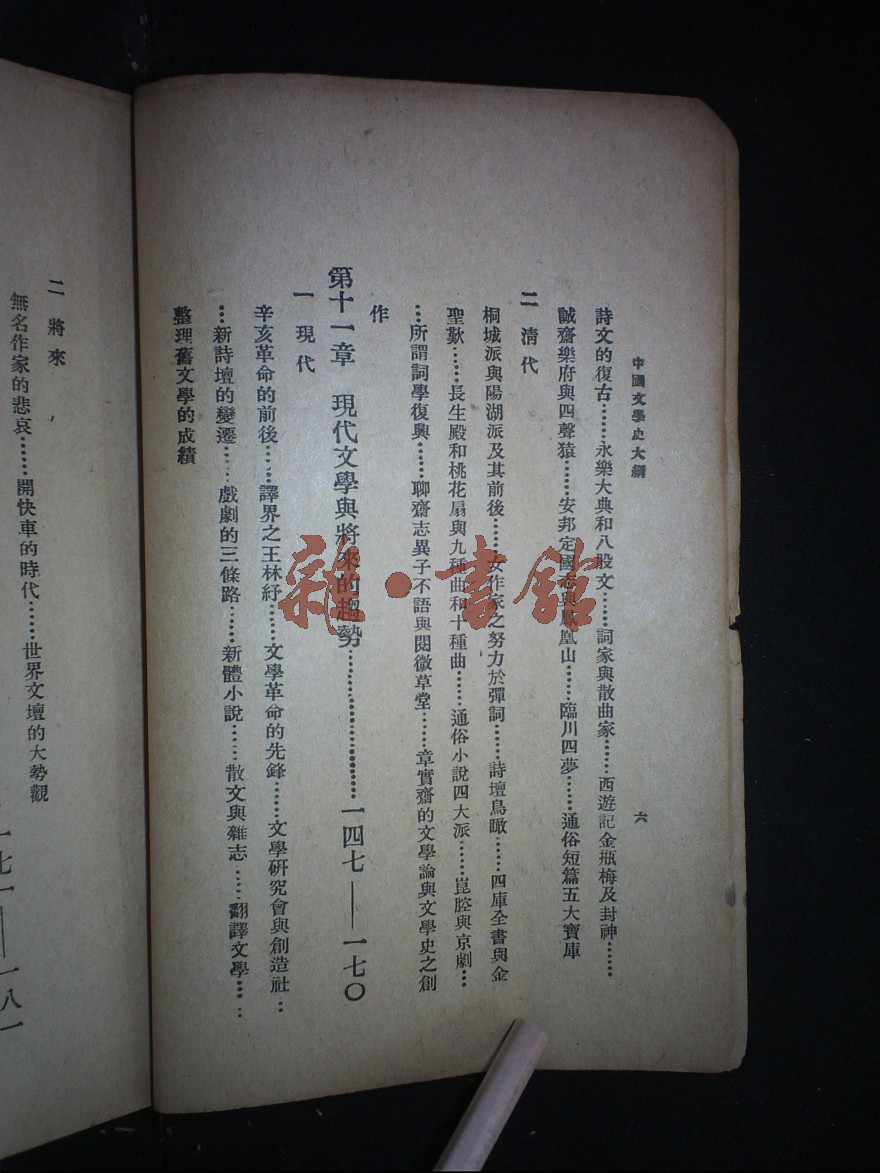 中國文學史大綱
六
詩文的復古………永樂大典和八股文………詞家與散曲家………西遊記金瓶梅及封神………
誠齋樂府與四聲猿………安邦定國志與鳳凰山………臨川四夢………通俗短篇五大寶庫
二 清代
桐城派與陽湖派及其前後………女作家之努力於彈詞………詩壇鳥瞰………四庫全書與金
聖歎………長生殿和桃花扇與九種曲和十種曲………通俗小說四大派………崑腔與京劇…
…所謂詞學復興………聊齋志異子不語與閱微草堂………章實齋的文學論與文學史之創
作
第十一章 現代文學與將來的趨勢………………一四七——一七〇
一 現代
辛亥革命的前後………譯界之王林紓………文學革命的先鋒………文學研究會與創造社…
…新詩壇的變遷……戲劇的三條路……新體小說……散文與雜志……翻譯文學……
整理舊文學的成績
二 將來
無名作家的悲哀………開快車的時代………世界文壇的大勢觀
一七一——一八一
雜·書館